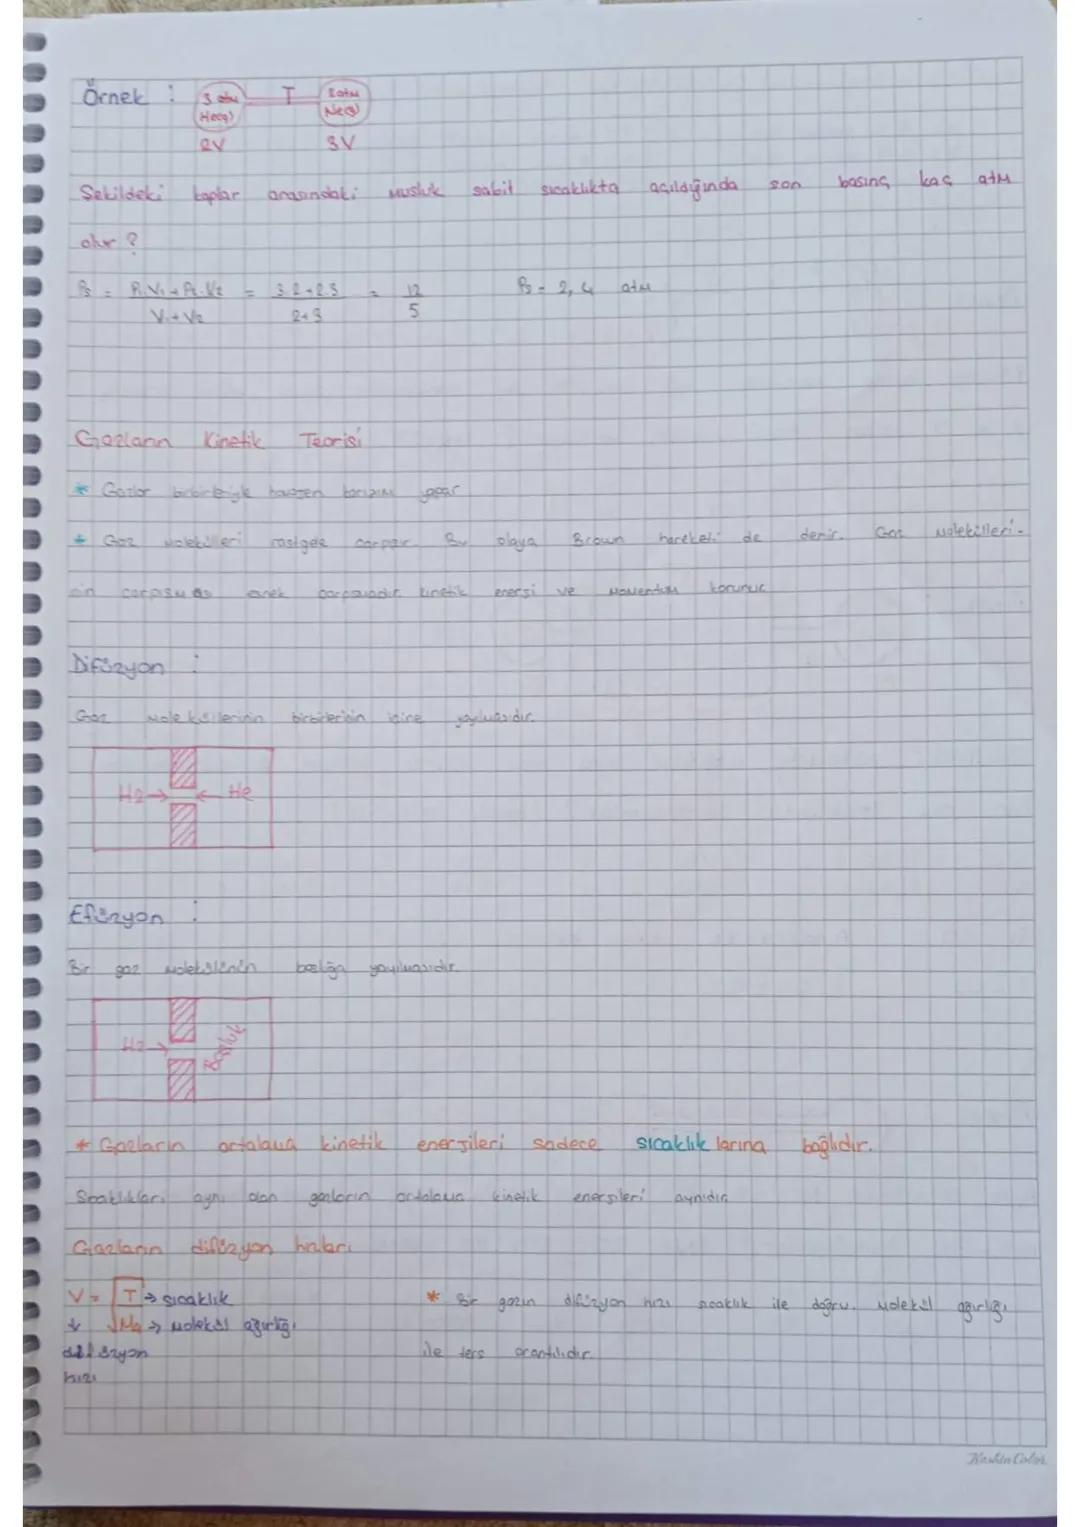 Örnek :
3 atm T 2 atm
He(g) Ne(g)
2V 3V
Şekildeki kaplar arasındaki musluk sabit sıcaklıkta açıldığında son basınç kaç atm
olur ?
Ps = P1.V1+P2.V2 = 3.2+2.3 = 12 Ps = 2,4 atm
V1+V2 2+3 5
Gazların Kinetik Teorisi
* Gazlar birbirleriyle homojen karışım yapar
* Gaz molekülleri rastgele çarpar. Bu olaya Brown hareketi de denir. Gaz molekülleri-
nin çarpışması esnek çarpışmadır. kinetik enerji ve momentum korunur.
Difüzyon :
Gaz moleküllerinin birbirlerinin içine yayılmasıdır.
H2 → ← He
Efüzyon :
Bir gaz molekülünün boşluğa yayılmasıdır.
H2 → Boşluk
* Gazların ortalama kinetik enerjileri sadece sıcaklıklarına bağlıdır.
Sıcaklıkları aynı olan gazların ortalama kinetik enerjileri aynıdır.
Gazların difüzyon hızları
V = √T → sıcaklık * Bir gazın difüzyon hızı sıcaklık ile doğru. molekül ağırlığı
↓ √Ma → molekül ağırlığı
difüzyon ile ters orantılıdır.
hızı
Keskin Color